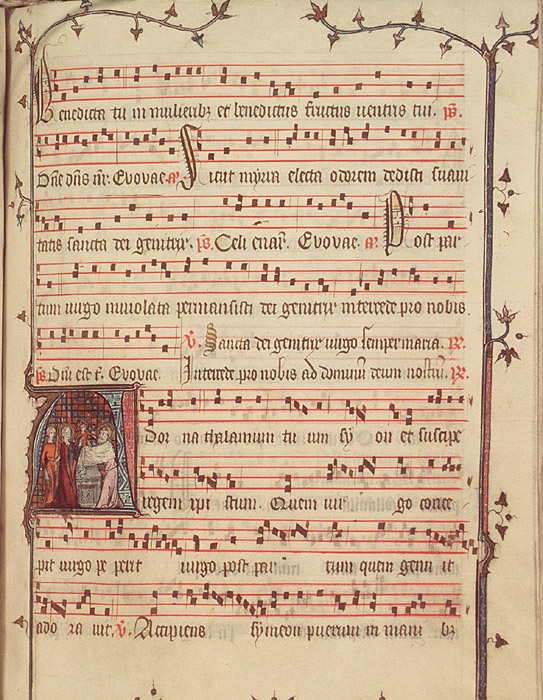 Benedicta tu in mulieribz et benedictus fructus uentris tui. ps.
Dñe dñs nr̄. Evovae. a. Sicut myrra electa odorem dedisti suaui
tatis sancta dei genitrix. ps. Celi enar̄. Evovae. a. Post par
tum uirgo inuiolata permansisti dei genitrix intercede pro nobis.
v. Sancta dei genitrix uirgo semper maria. R.
ps. Dñi est t̄. Evovae. Intercede pro nobis ad dominum deum nostrū. R.
Ador na thalamum tu um sy on et suscipe
regem xpi stum. Quem uir go conce
pit uirgo pe perit uirgo post par tum quem genu it
ado ra uit. v. Accipiens symeon puerum in mani bz